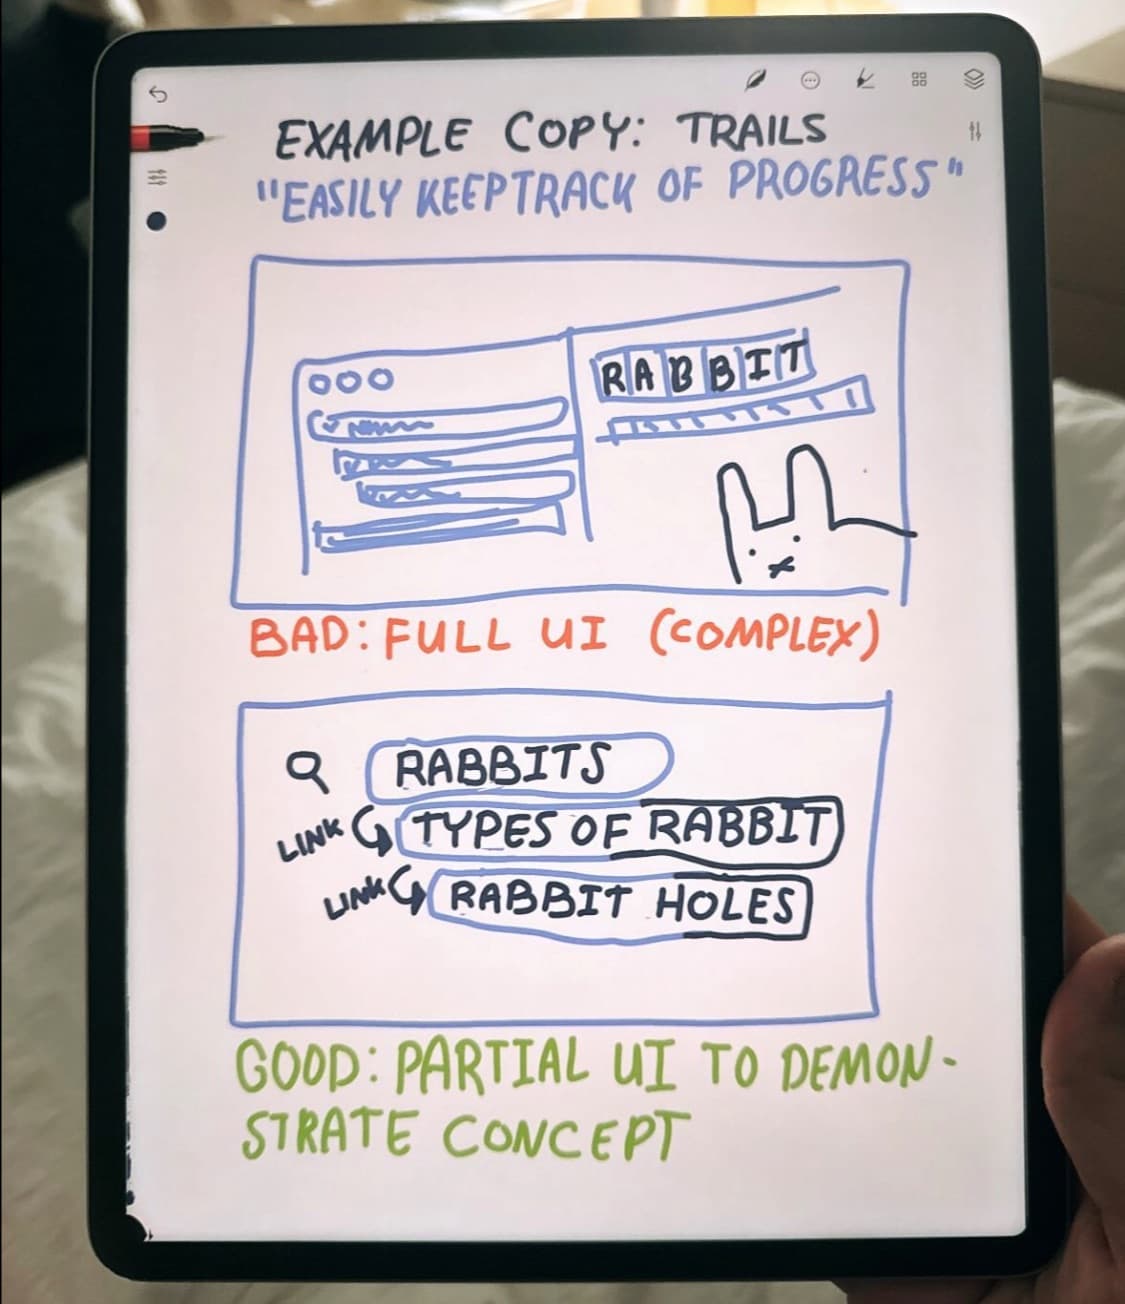 EXAMPLE COPY: TRAILS
"EASILY KEEP TRACK OF PROGRESS"
RABBIT
BAD: FULL UI (COMPLEX)
RABBITS
LINK TYPES OF RABBIT
LINK RABBIT HOLES
GOOD: PARTIAL UI TO DEMON-
STRATE CONCEPT